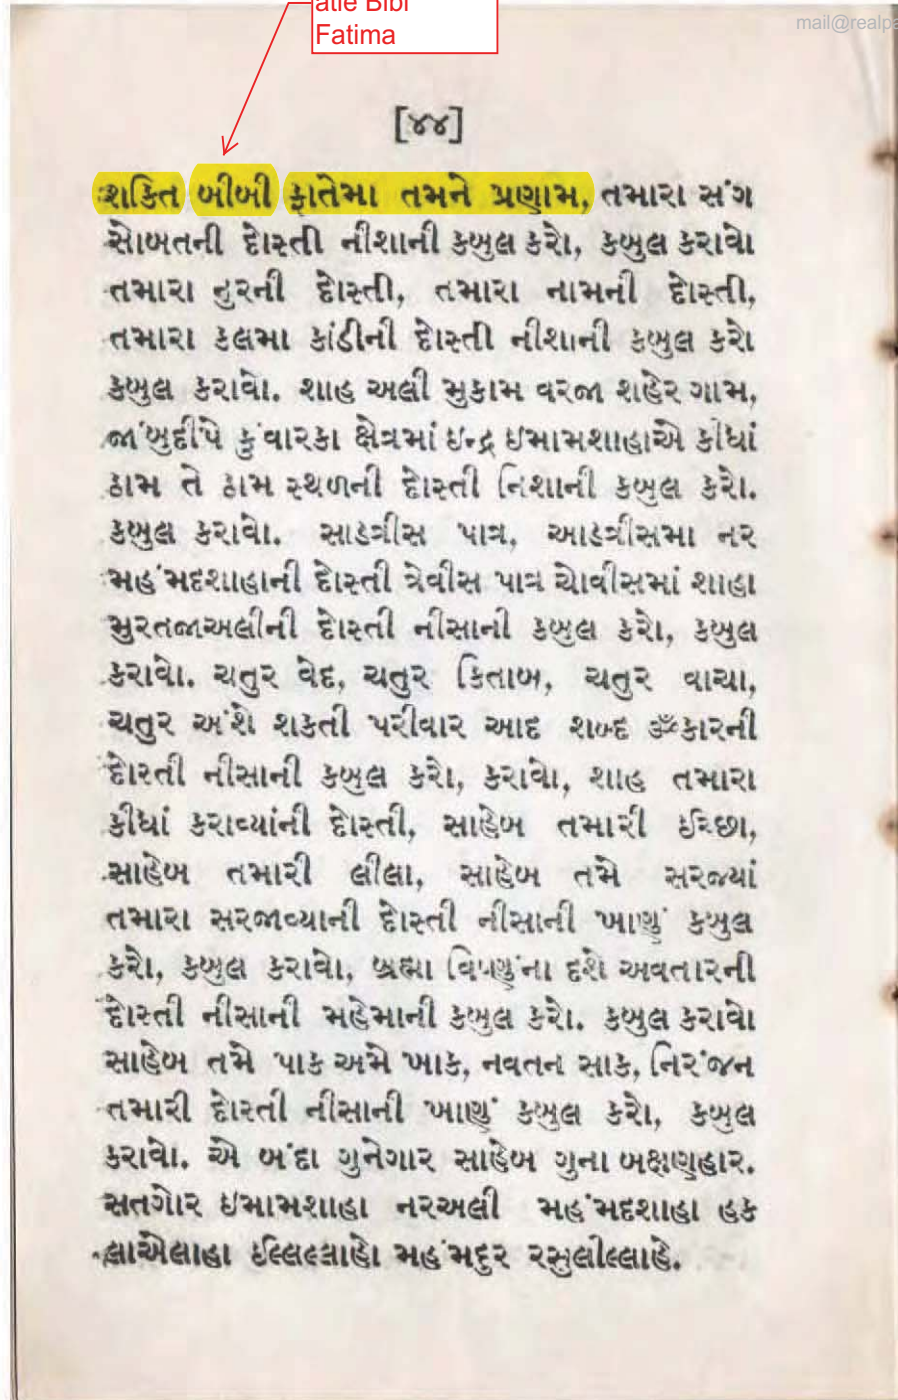 atle Bibi
Fatima
mail@realpa
[૪૪]
શક્તિ બીબી ફાતેમા તમને પ્રણામ, તમારા સંગ
સોબતની દોસ્તી નીશાની કબુલ કરો, કબુલ કરાવો
તમારા નુરની દોસ્તી, તમારા નામની દોસ્તી,
તમારા કલમા કાંડીની દોસ્તી નીશાની કબુલ કરો
કબુલ કરાવો. શાહ અલી મુકામ વરજા શહેર ગામ,
જાંબુદીપે કુંવારકા ક્ષેત્રમાં ઇન્દ્ર ઇમામશાહાએ કીધાં
ઠામ તે ઠામ સ્થળની દોસ્તી નિશાની કબુલ કરો.
કબુલ કરાવો. સાડત્રીસ પાત્ર, આડત્રીસમા નર
મહંમદશાહાની દોસ્તી ત્રેવીસ પાત્ર ચોવીસમાં શાહા
મુરતજાઅલીની દોસ્તી નીસાની કબુલ કરો, કબુલ
કરાવો. ચતુર વેદ, ચતુર કિતાબ, ચતુર વાચા,
ચતુર અંશે શકતી પરીવાર આદ શબ્દ ૐકારની
દોસ્તી નીસાની કબુલ કરો, કરાવો, શાહ તમારા
કીધાં કરાવ્યાંની દોસ્તી, સાહેબ તમારી ઈચ્છા,
સાહેબ તમારી લીલા, સાહેબ તમે સરજ્યાં
તમારા સરજાવ્યાની દોસ્તી નીસાની ખાણું કબુલ
કરો, કબુલ કરાવો, બ્રહ્મા વિષ્ણુંના દશે અવતારની
દોસ્તી નીસાની મહેમાની કબુલ કરો. કબુલ કરાવો
સાહેબ તમે પાક અમે ખાક, નવતન સાક, નિરંજન
તમારી દોસ્તી નીસાની ખાણું કબુલ કરો, કબુલ
કરાવો. એ બંદા ગુનેગાર સાહેબ ગુના બક્ષણહાર.
સતગોર ઇમામશાહા નરઅલી મહંમદશાહા હક
લાએલાહા ઈલ્લિલ્લાહો મહંમદુર રસુલીલ્લાહે.